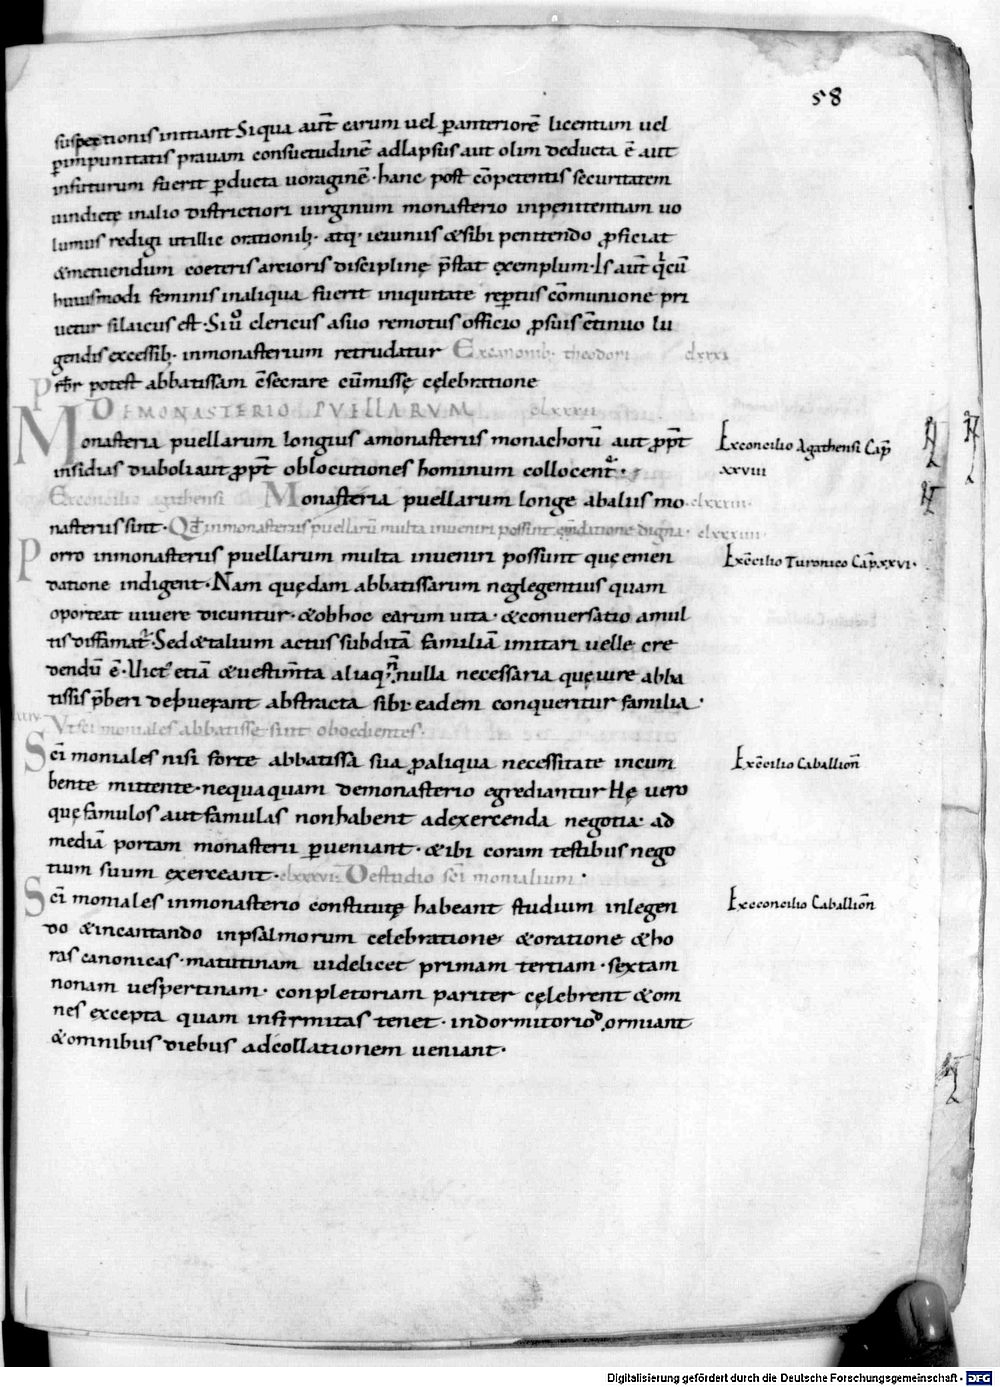 58
suspectionis initiant Si qua aut̄ earum uel p̱anteriorē licentiam uel
p̱impunitatis prauam consuetudinē adlapsus aut olim deducta ē aut
infuturum fuerit p̱ducta uoraginē · hanc post cōpetentis seueritatem
uindictę inalio districtiori uirginum monasterio inpenitentiam uo
lumus redigi ut illic orationib; · atq; ieiuniis &sibi penitendo ꝓficiat
&metuendum coeteris arcioris disciplinę p̄stat exemplum · Is aut̄ q̇cū
huiusmodi feminis inaliqua fuerit iniquitate rep̱tus cōmunione pri
uetur si laicus est · Si ů clericus a suo remotus officio ꝓsuis c̄tinuo lu
gendis excessib; inmonasterium retrudatur Ex canonib; theodori clxxxi
Prb̄r potest abbatissam c̄secrare cū missę cęlebratione
DE MONASTERIO PUELLARUM clxxxii
Monasteria puellarum longius amonasteriis monachorū aut ꝓpt̄
Ex concilio Agathensi Cap̄
insidias diaboli aut ꝓpt̄ oblocutiones hominum collocent᷑ ·
xxviii
Ex concilio agathensi Monasteria puellarum longe ab aliis mo clxxxiii ·
nasteriis sint · Qđ inmonasteriis puellarū multa inueniri possint em̄datione digna · clxxxiiii
Porro inmonasteriis puellarum multa inueniri possunt quę emen
Ex c̄cilio Turonico Cap̄ xxvi ·
datione indigent · Nam quędam abbatissarum neglegentius quam
oporteat uiuere dicuntur · &obhoc earum uita · &conuersatio a mul
tis diffamat᷑ · Sed &talium actus subditā familiā imitari uelle cre
dendū ē · Uict᷑ etiā &uestim̄ta aliaq; n̄ nulla necessaria quę iure abba
tissis p̄beri debuerant abstracta sibi eadem conqueritur familia ·
Ut sc̄i moniales abbatissę sint oboedientes ·
Sc̄i moniales nisi forte abbatissa sua ꝓ aliqua necessitate incum
Ex c̄cilio Caballion̄
bente mittente · nequaquam demonasterio egrediantur Hę uero
quę famulos aut famulas nonhabent adexercenda negotia · ad
mediā portam monasterii p̱ueniant · &ibi coram testibus nego
tium suum exerceant · clxxxvi · De studio sc̄i monialium ·
Sc̄i moniales inmonasterio constitutę habeant studium inlegen
Ex concilio Caballion̄
do &incantando inpsalmorum celebratione &oratione &ho
ras canonicas · matutinam uidelicet primam tertiam · sextam
nonam uespertinam · conpletoriam pariter cęlebrent &om
nes excepta quam infirmitas tenet · indormitorio dormiant
&omnibus diebus adcollationem ueniant ·
Digitalisierung gefördert durch die Deutsche Forschungsgemeinschaft - DFG